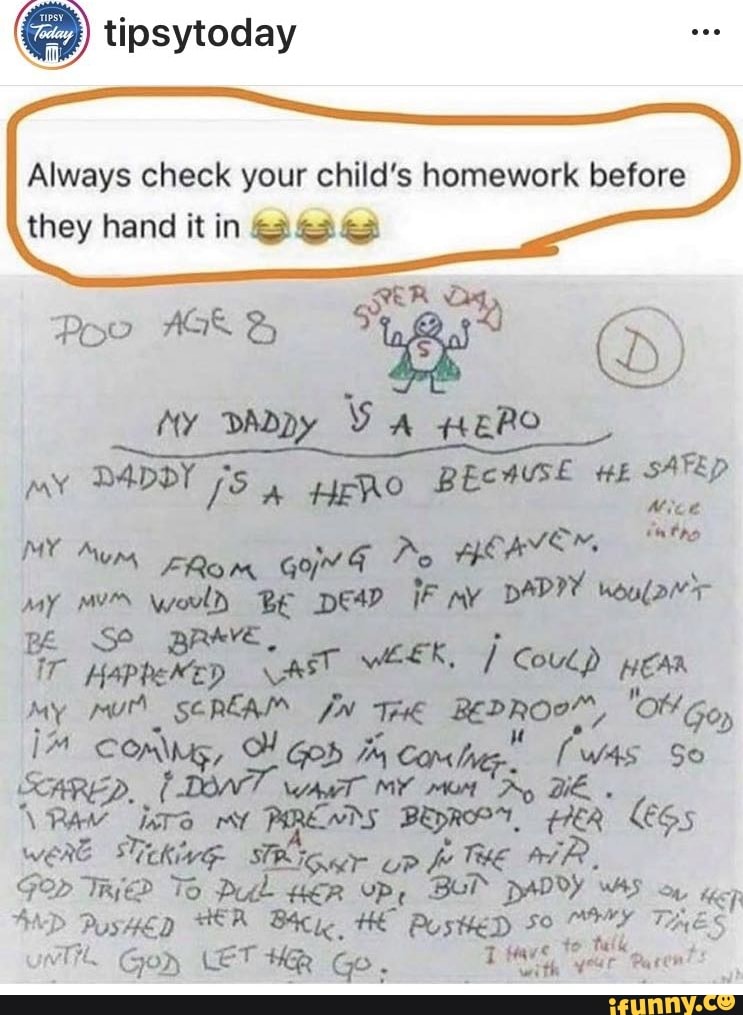 TIPSY
Today
tipsytoday
Always check your child's homework before
they hand it in 😂😂😂
POO AGE 8
SUPER DAD
S
D
MY DADDY iS A HERO
MY DADDY iS A HERO BECAUSE HE SAFED
Nice
intro
MY MUM FROM GOiNG To HEAVEN.
MY MUM WOULD BE DEAD iF MY DADDY WOULDN'T
BE SO BRAVE.
iT HAPPENED LAST WEEK. i COULD HEAR
MY MUM SCREAM iN THE BEDROOM, "OH GOD
i'M COMiNG, OH GOD iM COMiNG." i WAS SO
SCARED. i DON'T WANT MY MUM To DiE.
i RAN iNTO MY PARENTS BEDROOM. HER LEGS
WERE STiCKiNG STRAiGHT UP iN THE AiR.
GOD TRiED TO PULL HER UP, BUT DADDY WAS ON HER
AND PUSHED HER BACK. HE PUSHED SO MANY TiMES
UNTiL GOD LET HER GO.
I Have to talk
with your Parents
ifunny.co